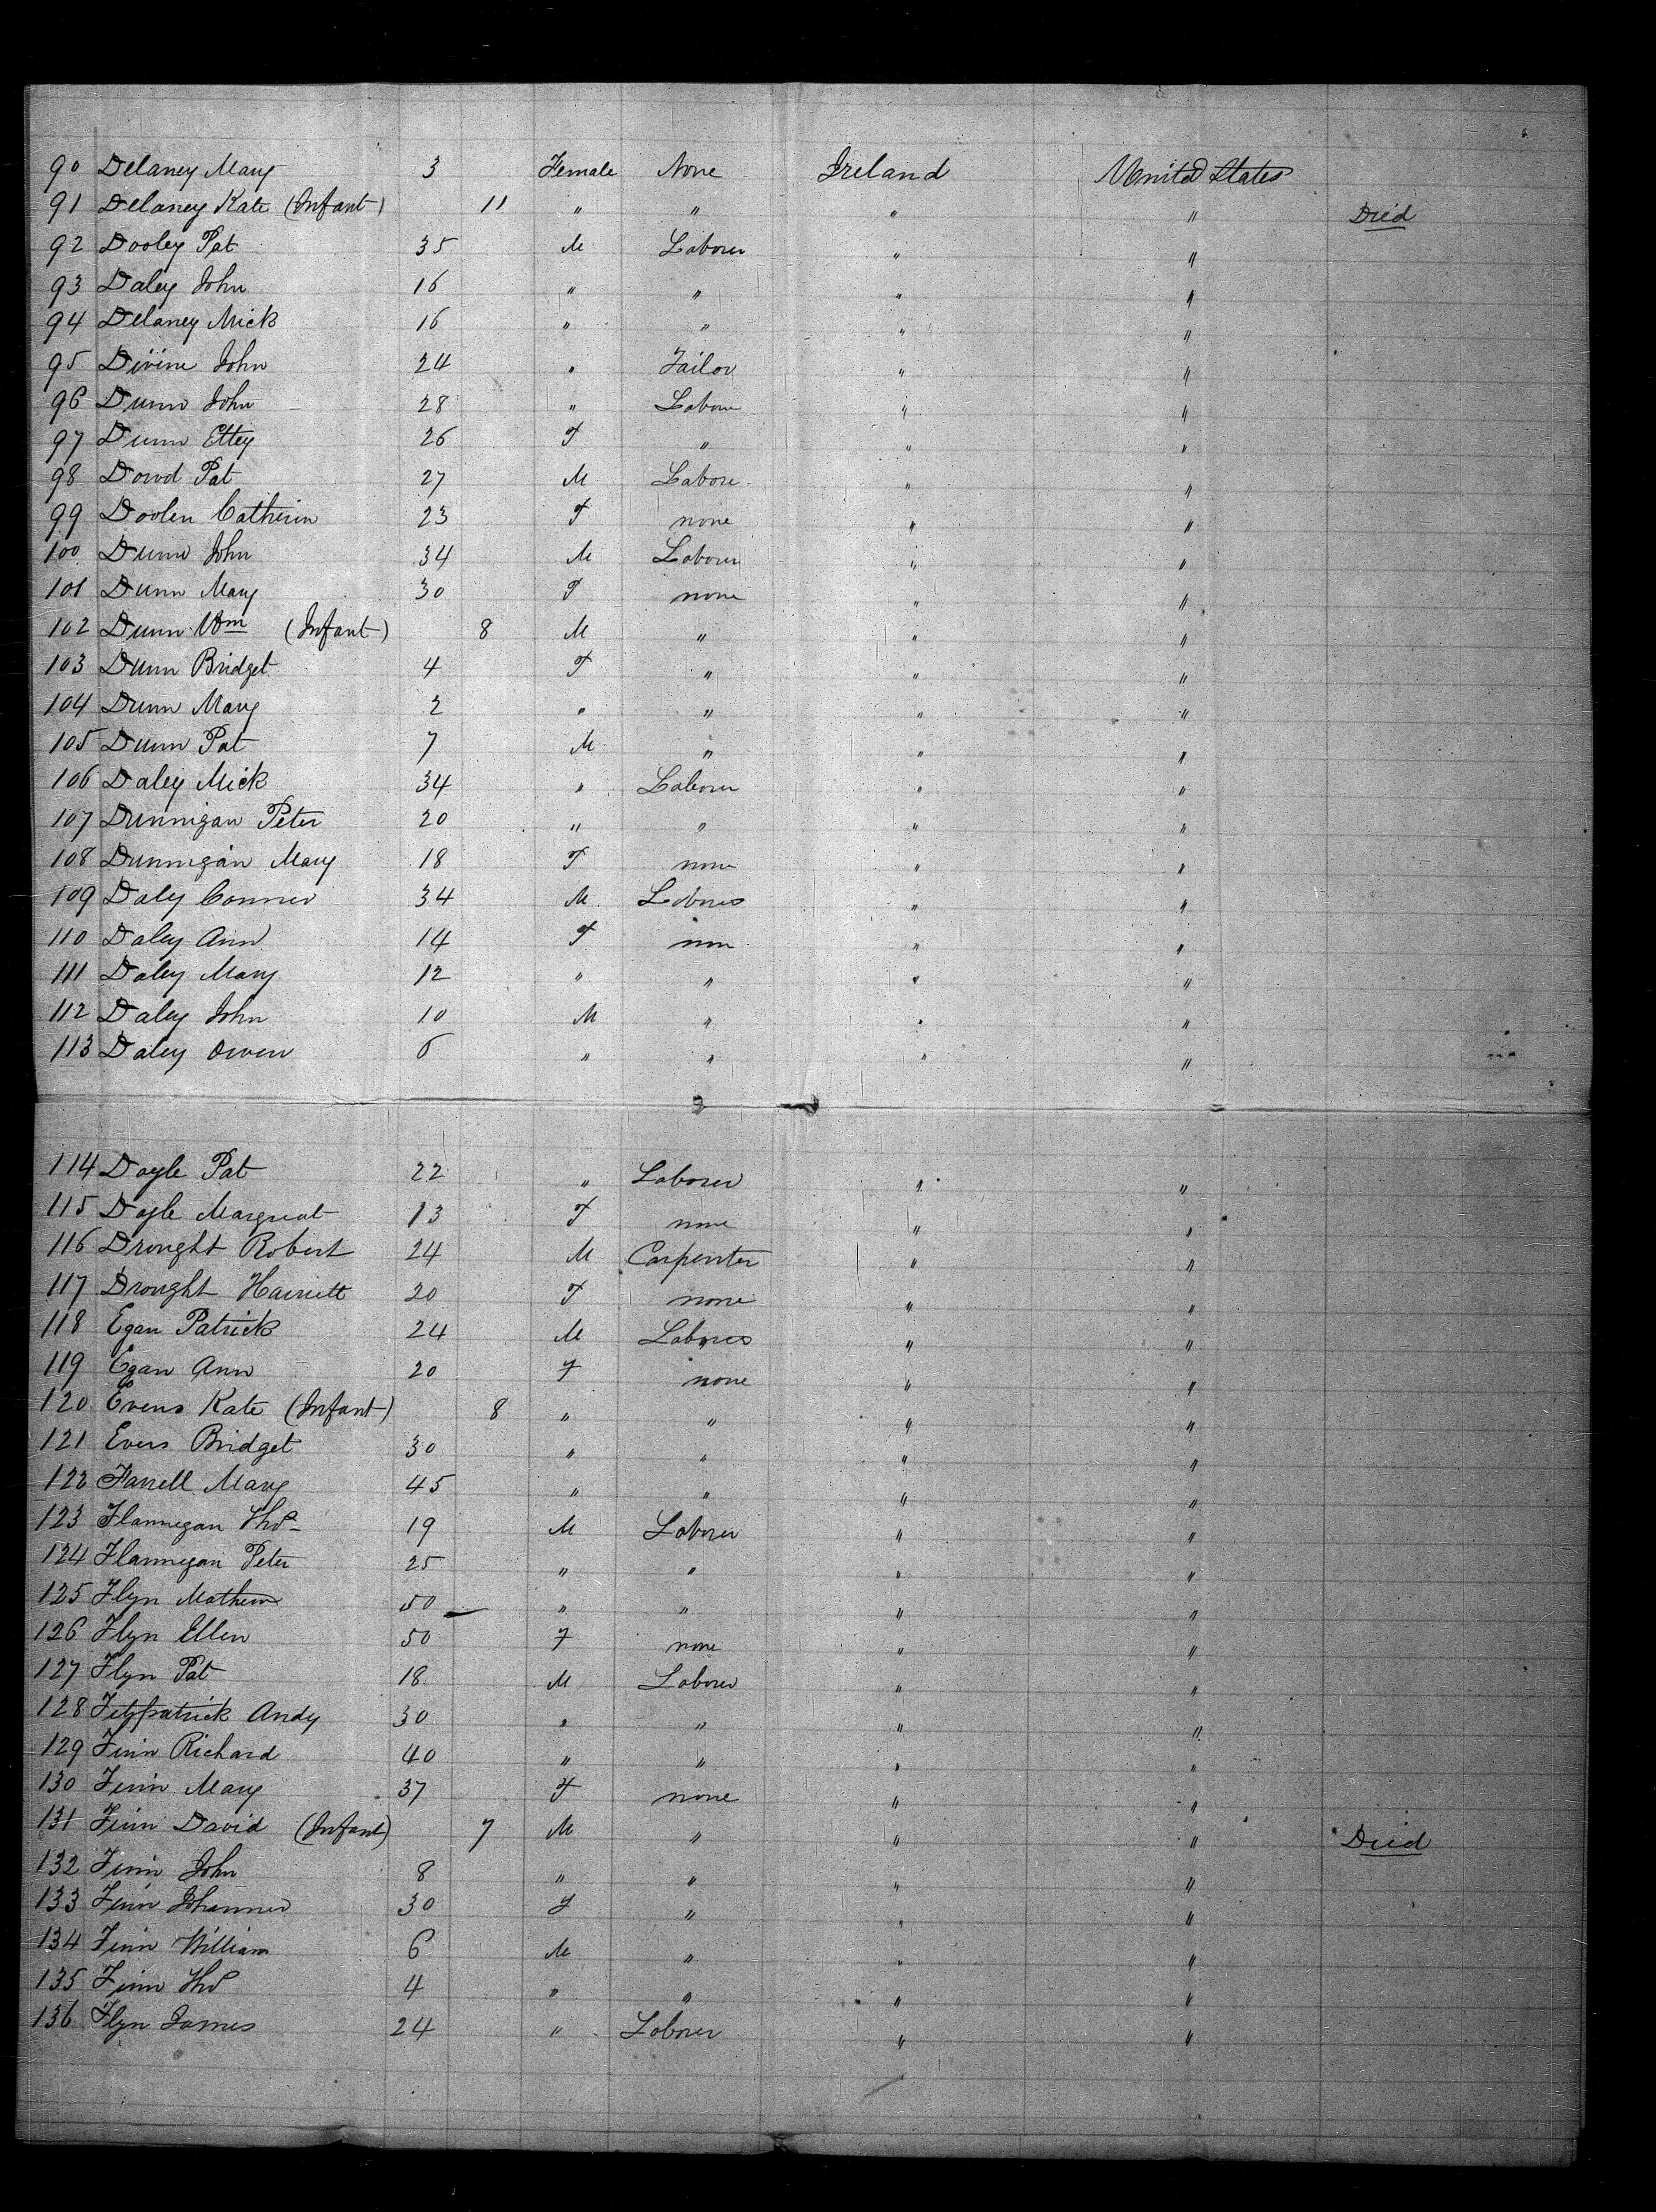 90 Delaney Mary 3 Female None Ireland United States
91 Delaney Kate (Infant) 11 " " " " Died
92 Dooley Pat 35 M Laborer " "
93 Daley John 16 " " " "
94 Delaney Mick 16 " " " "
95 Divine John 24 " Tailor " "
96 Dunn John 28 " Labore " "
97 Dunn Ettey 26 F " " "
98 Dowd Pat 27 M Labore " "
99 Doolen Catherin 23 F none " "
100 Dunn John 34 M Laborer " "
101 Dunn Mary 30 F none " "
102 Dunn Wm (Infant) 8 M " " "
103 Dunn Bridget 4 F " " "
104 Dunn Mary 2 " " " "
105 Dunn Pat 7 M " " "
106 Daley Mick 34 " Laborer " "
107 Dunnigan Peter 20 " " " "
108 Dunnigan Mary 18 F none " "
109 Daley Conner 34 M Laborer " "
110 Daley Ann 14 F non " "
111 Daley Mary 12 " " " "
112 Daley John 10 M " " "
113 Daley Owen 6 " " " "
114 Doyle Pat 22 " Laborer " "
115 Doyle Margreat 13 F none " "
116 Drought Robert 24 M Carpenter " "
117 Drought Harriett 20 F none " "
118 Egan Patrick 24 M Laborer " "
119 Egan Ann 20 F none " "
120 Evens Kate (Infant) 8 " " " "
121 Evers Bridget 30 " " " "
122 Farrell Mary 45 " " " "
123 Flannegan Thos 19 M Laborer " "
124 Flannegan Peter 25 " " " "
125 Flyn Mathew 50 " " " "
126 Flyn Ellen 50 F none " "
127 Flyn Pat 18 M Laborer " "
128 Fitzpatrick Andy 30 " " " "
129 Finn Richard 40 " " " "
130 Finn Mary 37 F none " "
131 Finn David (Infant) 7 M " " " Died
132 Finn John 8 " " " "
133 Finn Johanna 30 F " " "
134 Finn William 6 M " " "
135 Finn Thos 4 " " " "
136 Flyn James 24 " Laborer " "